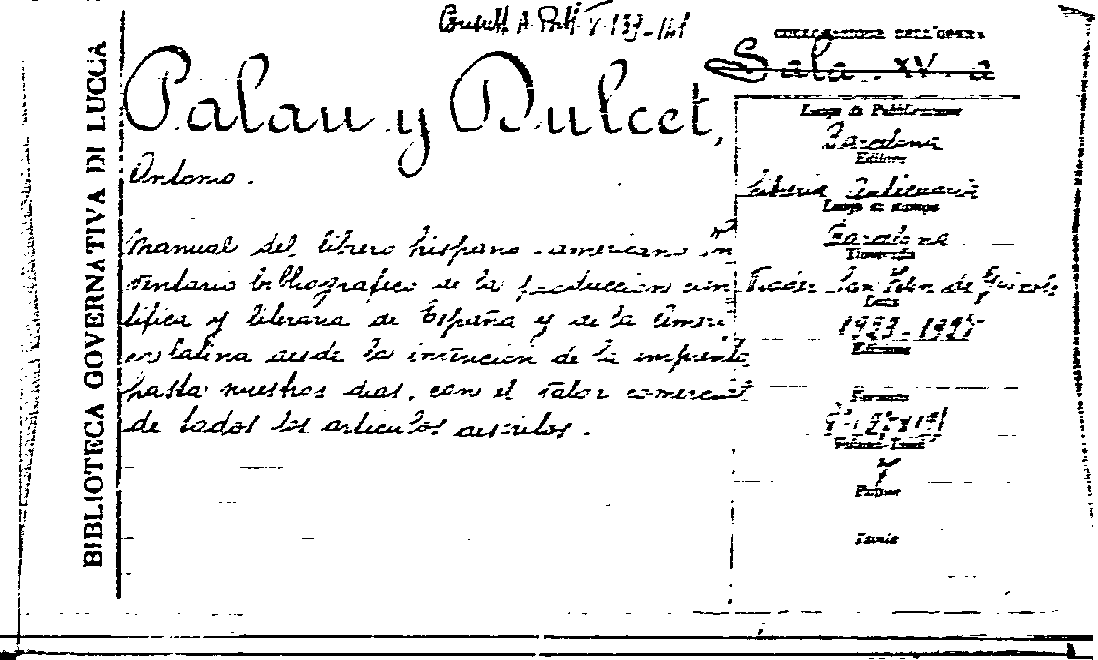 BIBLIOTECA GOVERNATIVA DI LUCCA
Consult. A. Patt. V. 133-141
COLLOCAZIONE DELL'OPERA
Sala XV. a
Palau y Dulcet,
Antonio.
Manual del librero hispano-americano in
ventario bibliografico de la produccion cien
tifica y literaria de España y de la Ameri
ca latina desde la invencion de la imprenta
hasta nuestros dias, con el valor comercial
de todos los articulos descritos.
Luogo di Pubblicazione
Barcelona
Editore
Libreria Anticuaria
Luogo di stampa
Barcelona
Tipografia
Anno
1923-1927
Edizione
Formato
Volumi
7
Pagine
Tavole